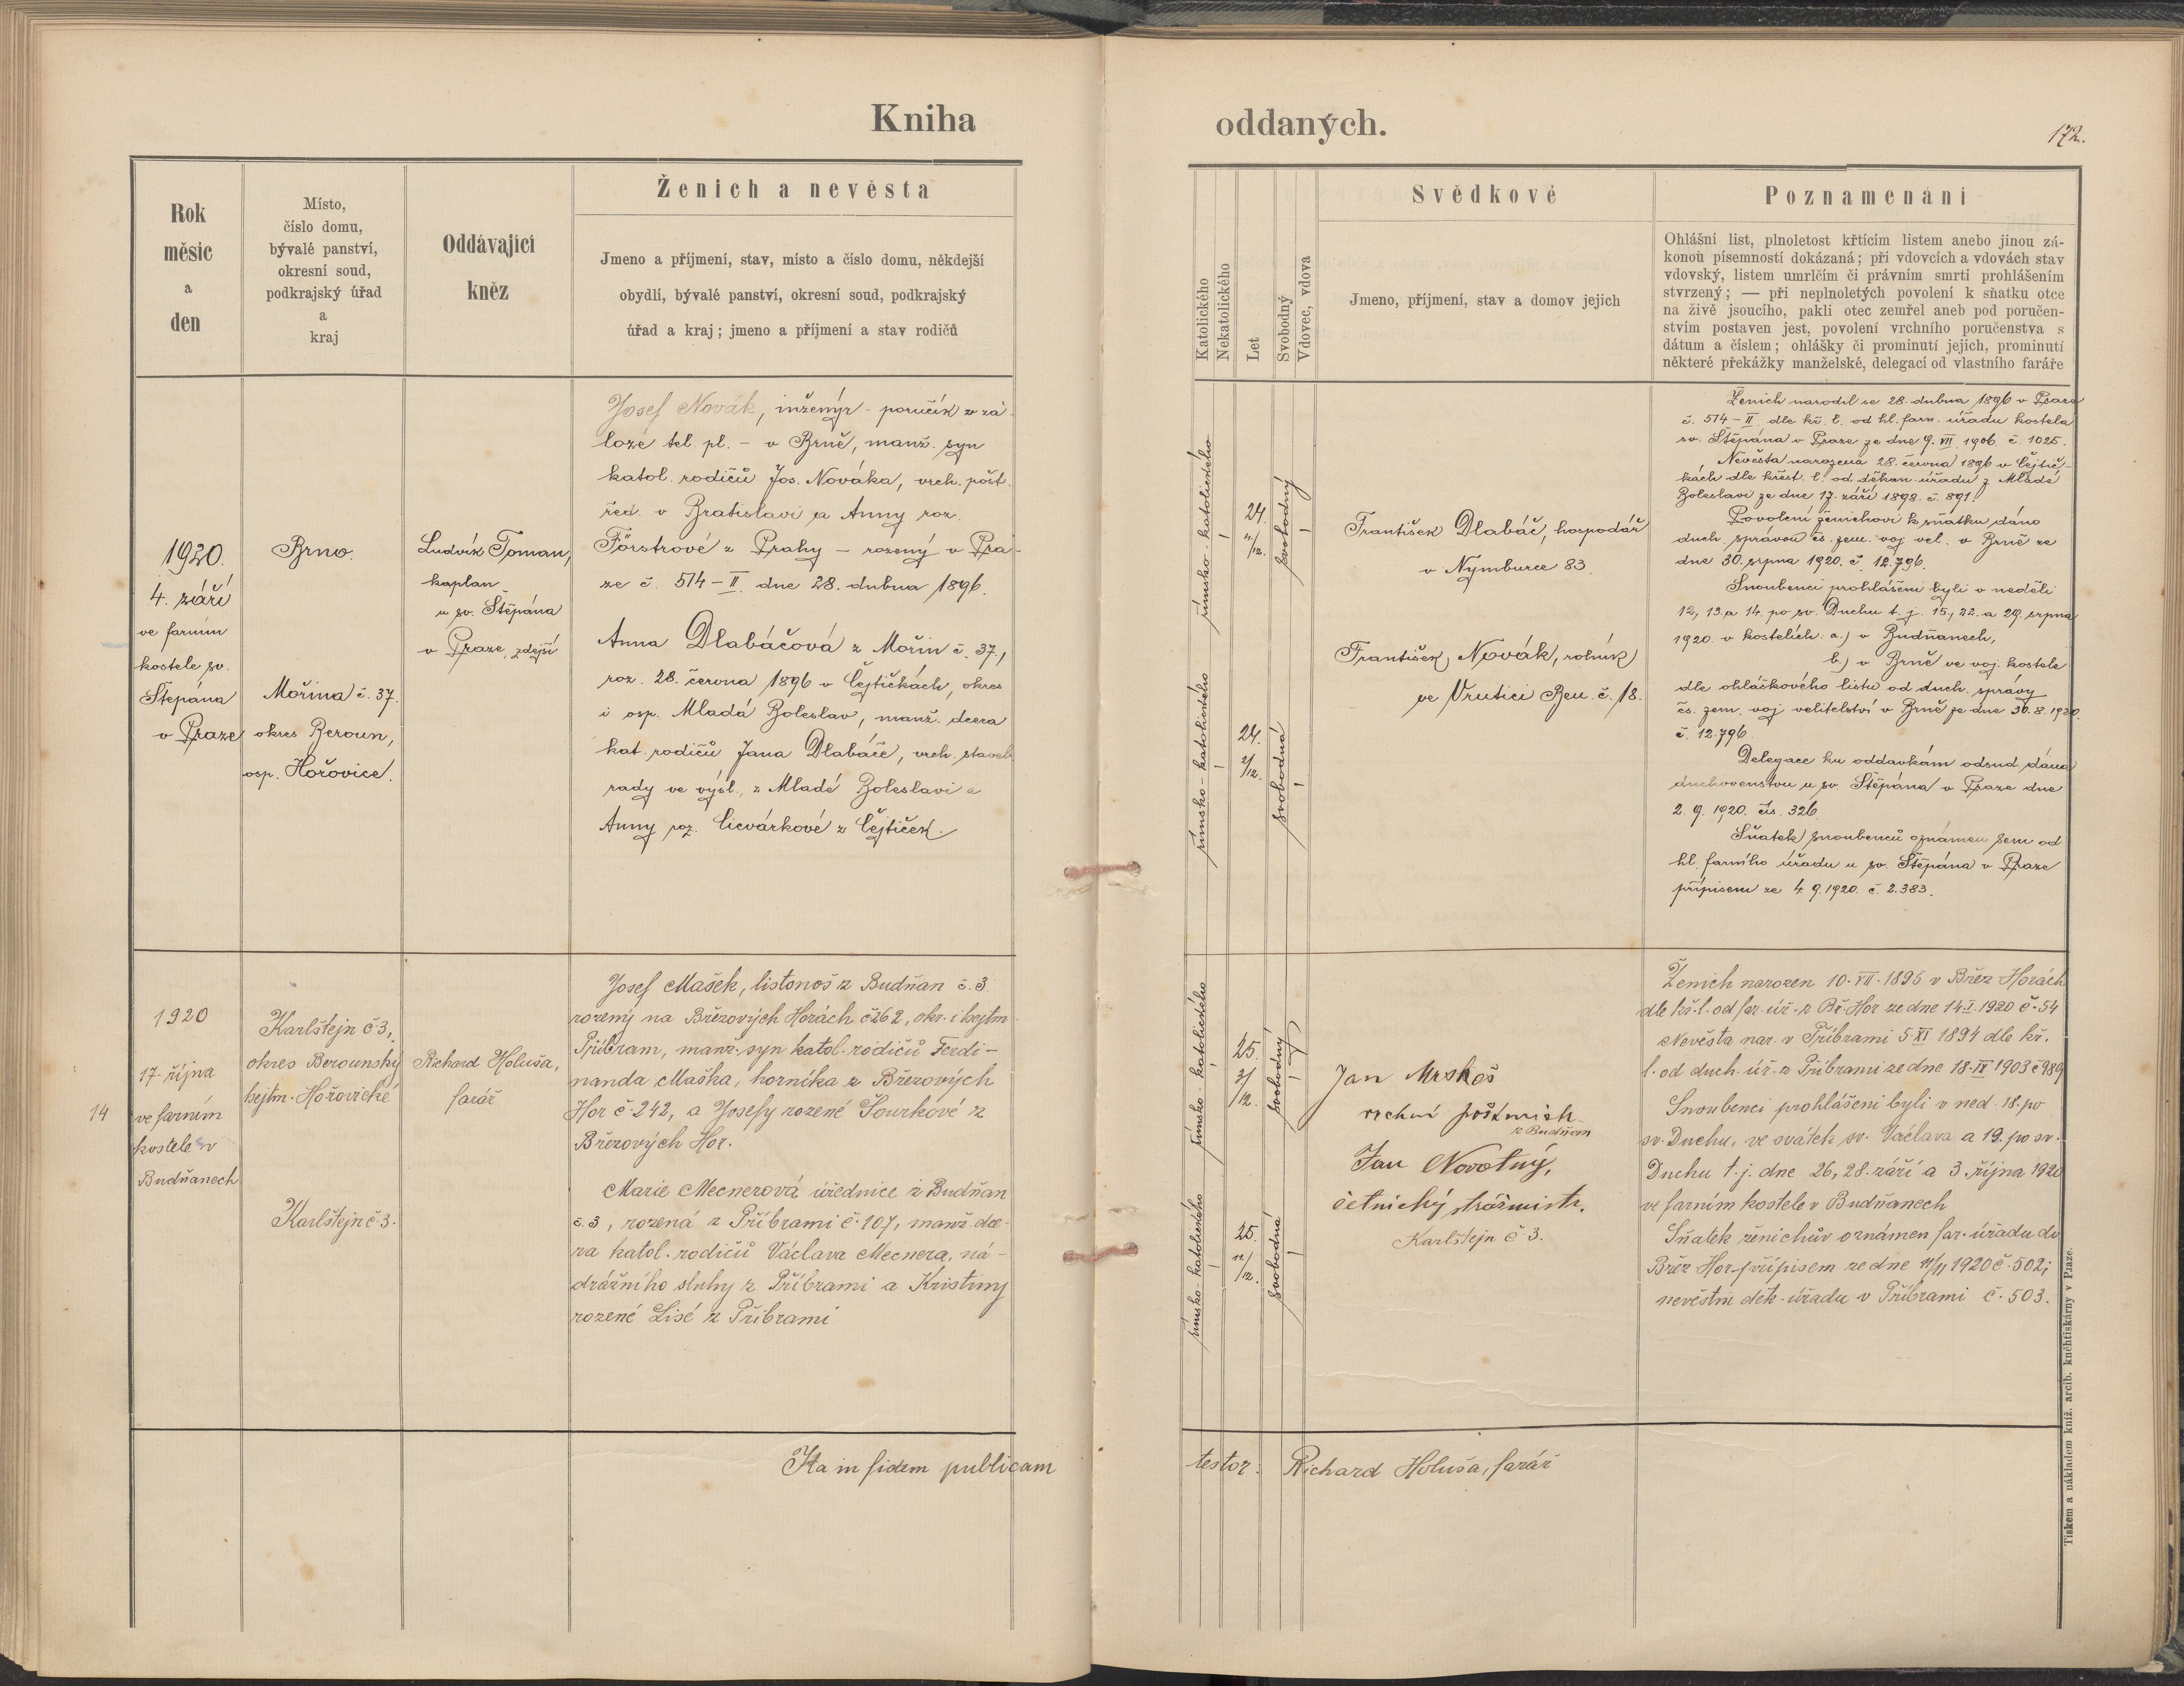 Kniha
oddaných.
172.
Rok
měsíc
a
den
Místo,
číslo domu,
bývalé panství,
okresní soud,
podkrajský úřad
a
kraj
Oddávající
kněz
Ženich a nevěsta
Jmeno a příjmení, stav, místo a číslo domu, někdejší
obydlí, bývalé panství, okresní soud, podkrajský
úřad a kraj; jmeno a příjmení a stav rodičů
Katolického
Nekatolického
Let
Svobodný
Vdovec, vdova
Svědkové
Jmeno, příjmení, stav a domov jejich
Poznamenáni
Ohlášní list, plnoletost křtícím listem anebo jinou zá-
konoů písemností dokázaná; při vdovcích a vdovách stav
vdovský, listem umrlčím či právním smrti prohlášením
stvrzený; — při neplnoletých povolení k sňatku otce
na živě jsoucího, pakli otec zemřel aneb pod poručen-
stvím postaven jest, povolení vrchního poručenstva s
dátum a číslem; ohlášky či prominutí jejich, prominutí
některé překážky manželské, delegací od vlastního faráře
1920.
4. září
ve farním
kostele sv.
Štěpána
v Praze
Brno.
Mořina č. 37.
okres Beroun,
osp. Hořovice.
Ludvík Toman,
kaplan
u sv. Štěpána
v Praze, zdejší
Josef Novák, inženýr - poručík v zá-
loze tel. pl. - v Brně, manž. syn
katol. rodičů Jos. Nováka, vrch. pošt.
řed. v Bratislavi a Anny roz.
Förstrové z Prahy - rozený v Pra-
ze č. 574 - II. dne 28. dubna 1896.
Anna Dlabáčová z Mořin č. 37.,
roz. 28. června 1896 v Čejtičkách, okres
i osp. Mladá Boleslav, manž. dcera
kat. rodičů Jana Dlabáče, vrch. staveb.
rady ve výsl., z Mladé Boleslavi a
Anny roz. Cicvárkové z Čejtiček.
římsko-katolického
24.
4/12.
svobodný
římsko-katolického
24.
2/12.
svobodná
František Dlabáč, hospodář
v Nymburce 83.
František Novák, rolník
ve Vrutici Ben. č. 18.
Ženich narodil se 28. dubna 1896 v Praze
č. 574 - II dle kř. l. od hl. farn. úřadu kostela
sv. Štěpána v Praze ze dne 9. VII. 1906. č. 1025.
Nevěsta narozena 28. června 1896 v Čejtič-
kách dle křest. l. od děkan. úřadu z Mladé
Boleslavi ze dne 17. září 1898. č. 891.
Povolení ženichovi k sňatku dáno
duch. správou čs. zem. voj. vel. v Brně ze
dne 30. srpna 1920. č. 12.796.
Snoubenci prohlášeni byli v neděli
12, 13. a 14. po sv. Duchu t. j. 15., 22. a 29. srpna
1920. v kostelích: a.) v Budňanech,
b.) v Brně ve voj. kostele
dle ohláškového listu od duch. správy
čs. zem. voj. velitelství v Brně ze dne 30. 8. 1920.
č. 12.796.
Delegace ku oddavkám odsud dána
duchovenstvu u sv. Štěpána v Praze dne
2. 9. 1920. čís. 326.
Sňatek snoubenců oznámen sem od
hl. farního úřadu u sv. Štěpána v Praze
přípisem ze 4. 9. 1920. č. 2.383.
14
1920
17. října
ve farním
kostele v
Budňanech
Karlštejn č 3,
okres Berounský
hejtm. Hořovické
Karlštejn č. 3.
Richard Holuša,
farář
Josef Mašek, listonoš z Budňan č. 3
rozený na Březových Horách č 262, okr. i hejtm.
Příbram, manž. syn katol. rodičů Ferdi-
nanda Maška, horníka z Březových
Hor č. 242, a Josefy rozené Šourkové z
Březových Hor.
Marie Mecnerová úřednice z Budňan
č. 3, rozená z Příbrami č. 107, manž. dce-
ra katol. rodičů Václava Mecnera, ná-
drážního sluhy z Příbrami a Kristiny
rozené Lisé z Příbrami
římsko-katolického
25.
3/12.
svobodný
římsko-katolického
25.
11/12.
svobodná
Jan Mrskoš
vrchní poštmistr
z Budňan
Jan Novotný,
četnický strážmistr.
Karlštejn č 3.
Ženich narozen 10. VII. 1895 v Břez. Horách
dle kř. l. od far. úř. z Bř. Hor ze dne 14. I. 1920 č. 54
Nevěsta nar. v Příbrami 5. XI 1894 dle kř.
l. od duch. úř. z Příbrami ze dne 18. IX 1903 č 989
Snoubenci prohlášeni byli v ned. 18. po
sv. Duchu, ve svátek sv. Václava a 19. po sv.
Duchu t. j. dne 26, 28. září a 3. října 1920
ve farním kostele v Budňanech
Sňatek ženichův oznámen far. úřadu do
Břez. Hor přípisem ze dne 11/11 1920 č. 502;
nevěstin děk. úřadu v Příbrami č. 503.
Ita in fidem publicam
testor: Richard Holuša, farář
Tiskem a nákladem kníž. arcib. knéhtiskárny v Praze.